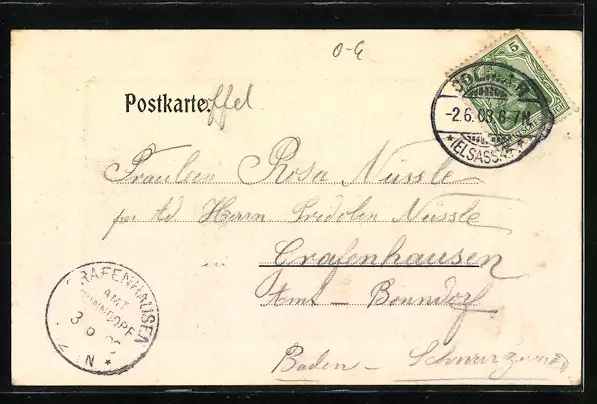 o-E
5
Postkarteoffel
COLMAR
-2.6.03.6-7N
*(ELSASS)*
Fräulein Rosa Nüssle
per Ad Herrn Fridolin Nüssle
in Grafenhausen
Amt - Bonndorf
Baden - Schwarzwald
GRAFENHAUSEN
AMT
BONNDORF
3 6
7 N *